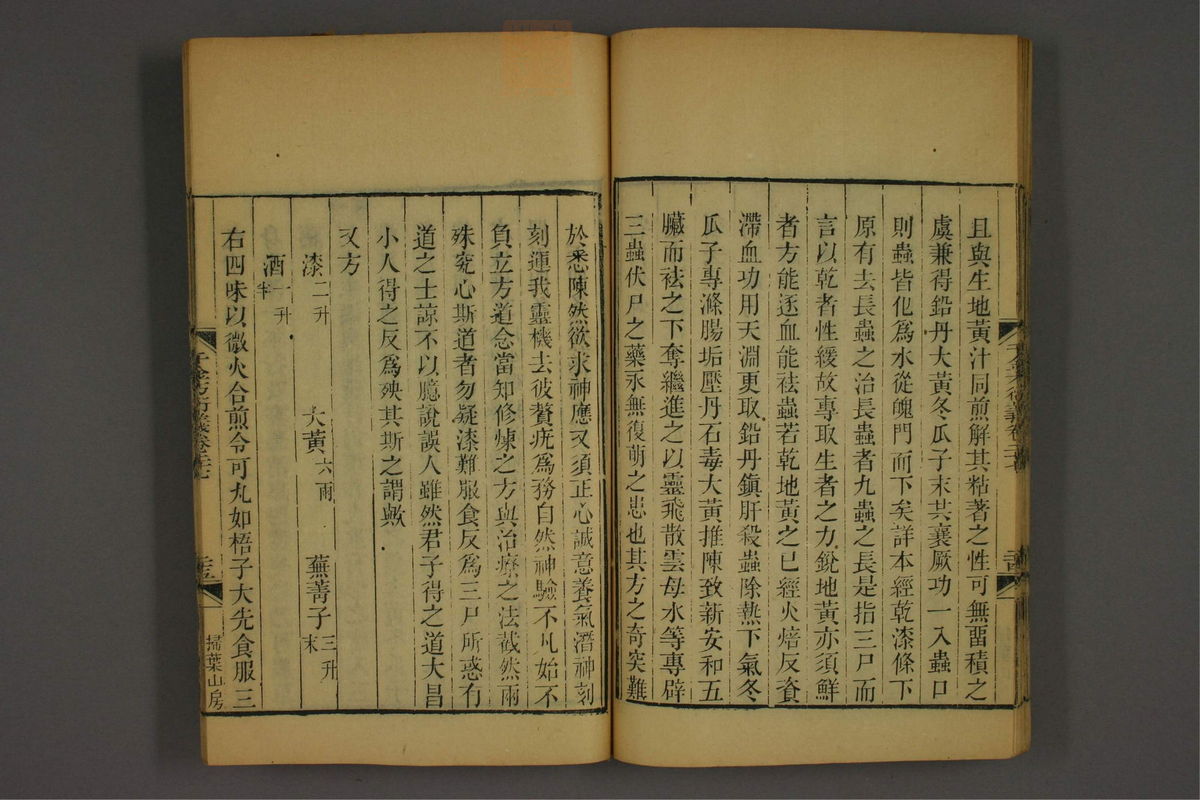 且與生地黃汁同煎解其粘著之性可無畱積之
虞兼得鉛丹大黃冬瓜子末共襄厥功一入蟲口
則蟲皆化爲水從魄門而下矣詳本經乾漆條下
原有去長蟲之治長蟲者九蟲之長是指三尸而
言以乾者性緩故專取生者之力銳地黃亦須鮮
者方能逐血能祛蟲若乾地黃之已經火焙反資
滯血功用天淵更取鉛丹鎭肝殺蟲除熱下氣冬
瓜子專滌腸垢壓丹石毒大黃推陳致新安和五
臟而祛之下奪繼進之以靈飛散雲母水等專辟
三蟲伏尸之藥永無復萌之患也其方之奇突難
千金方衍義卷二十七
於悉陳然欲求神應又須正心誠意養氣潛神刻
刻運我靈機去彼贅疣爲務自然神驗不凡始不
負立方道念當知修煉之方與治療之法截然兩
殊究心斯道者勿疑漆難服食反爲三尸所惑有
道之士諒不以臆說誤人雖然君子得之道大昌
小人得之反爲殃其斯之謂歟
又方
漆二升 大黃六兩 蕪菁子三升末
酒一升半
右四味以微火合煎令可丸如梧子大先食服三
千金方衍義卷二十七
掃葉山房